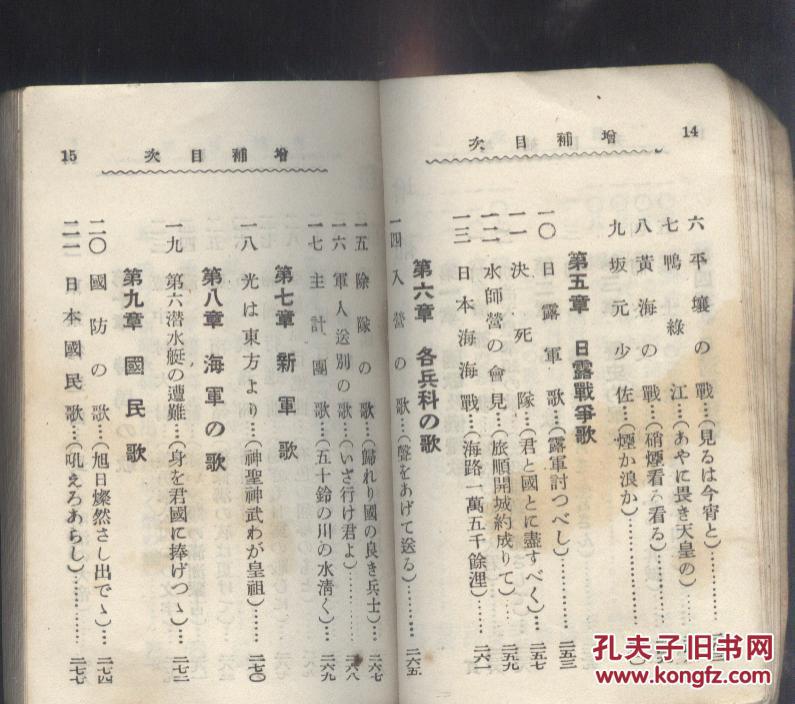 14
增補目次
六 平壤の戰…(見るは今宵と)
七 鴨綠江…(あやに畏き天皇の)
八 黃海の戰…(硝煙看る看る)
九 坂元少佐…(煙か浪か)
第五章 日露戰爭歌
一〇 日露軍歌…(露軍討つべし)…二五三
一一 決死隊…(君と國とに盡すべく)…二五七
一二 水師營の會見…(旅順開城約成りて)…二五九
一三 日本海海戰…(海路一萬五千餘浬)…二六一
第六章 各兵科の歌
一四 入營の歌…(聲をあげて送る)…二六五
15
增補目次
一五 除隊の歌…(歸れり國の良き兵士)…二六七
一六 軍人送別の歌…(いざ行け君よ)…二六八
一七 主計團歌…(五十鈴の川の水淸く)…二六九
第七章 新軍歌
一八 光は東方より…(神聖神武わが皇祖)…二七〇
第八章 海軍の歌
一九 第六潜水艇の遭難…(身を君國に捧げつゝ)…二七二
第九章 國民歌
二〇 國防の歌…(旭日燦然さし出でゝ)…二七四
二一 日本國民歌…(吼えろあらし)…二七七
孔夫子旧书网
www.kongfz.com